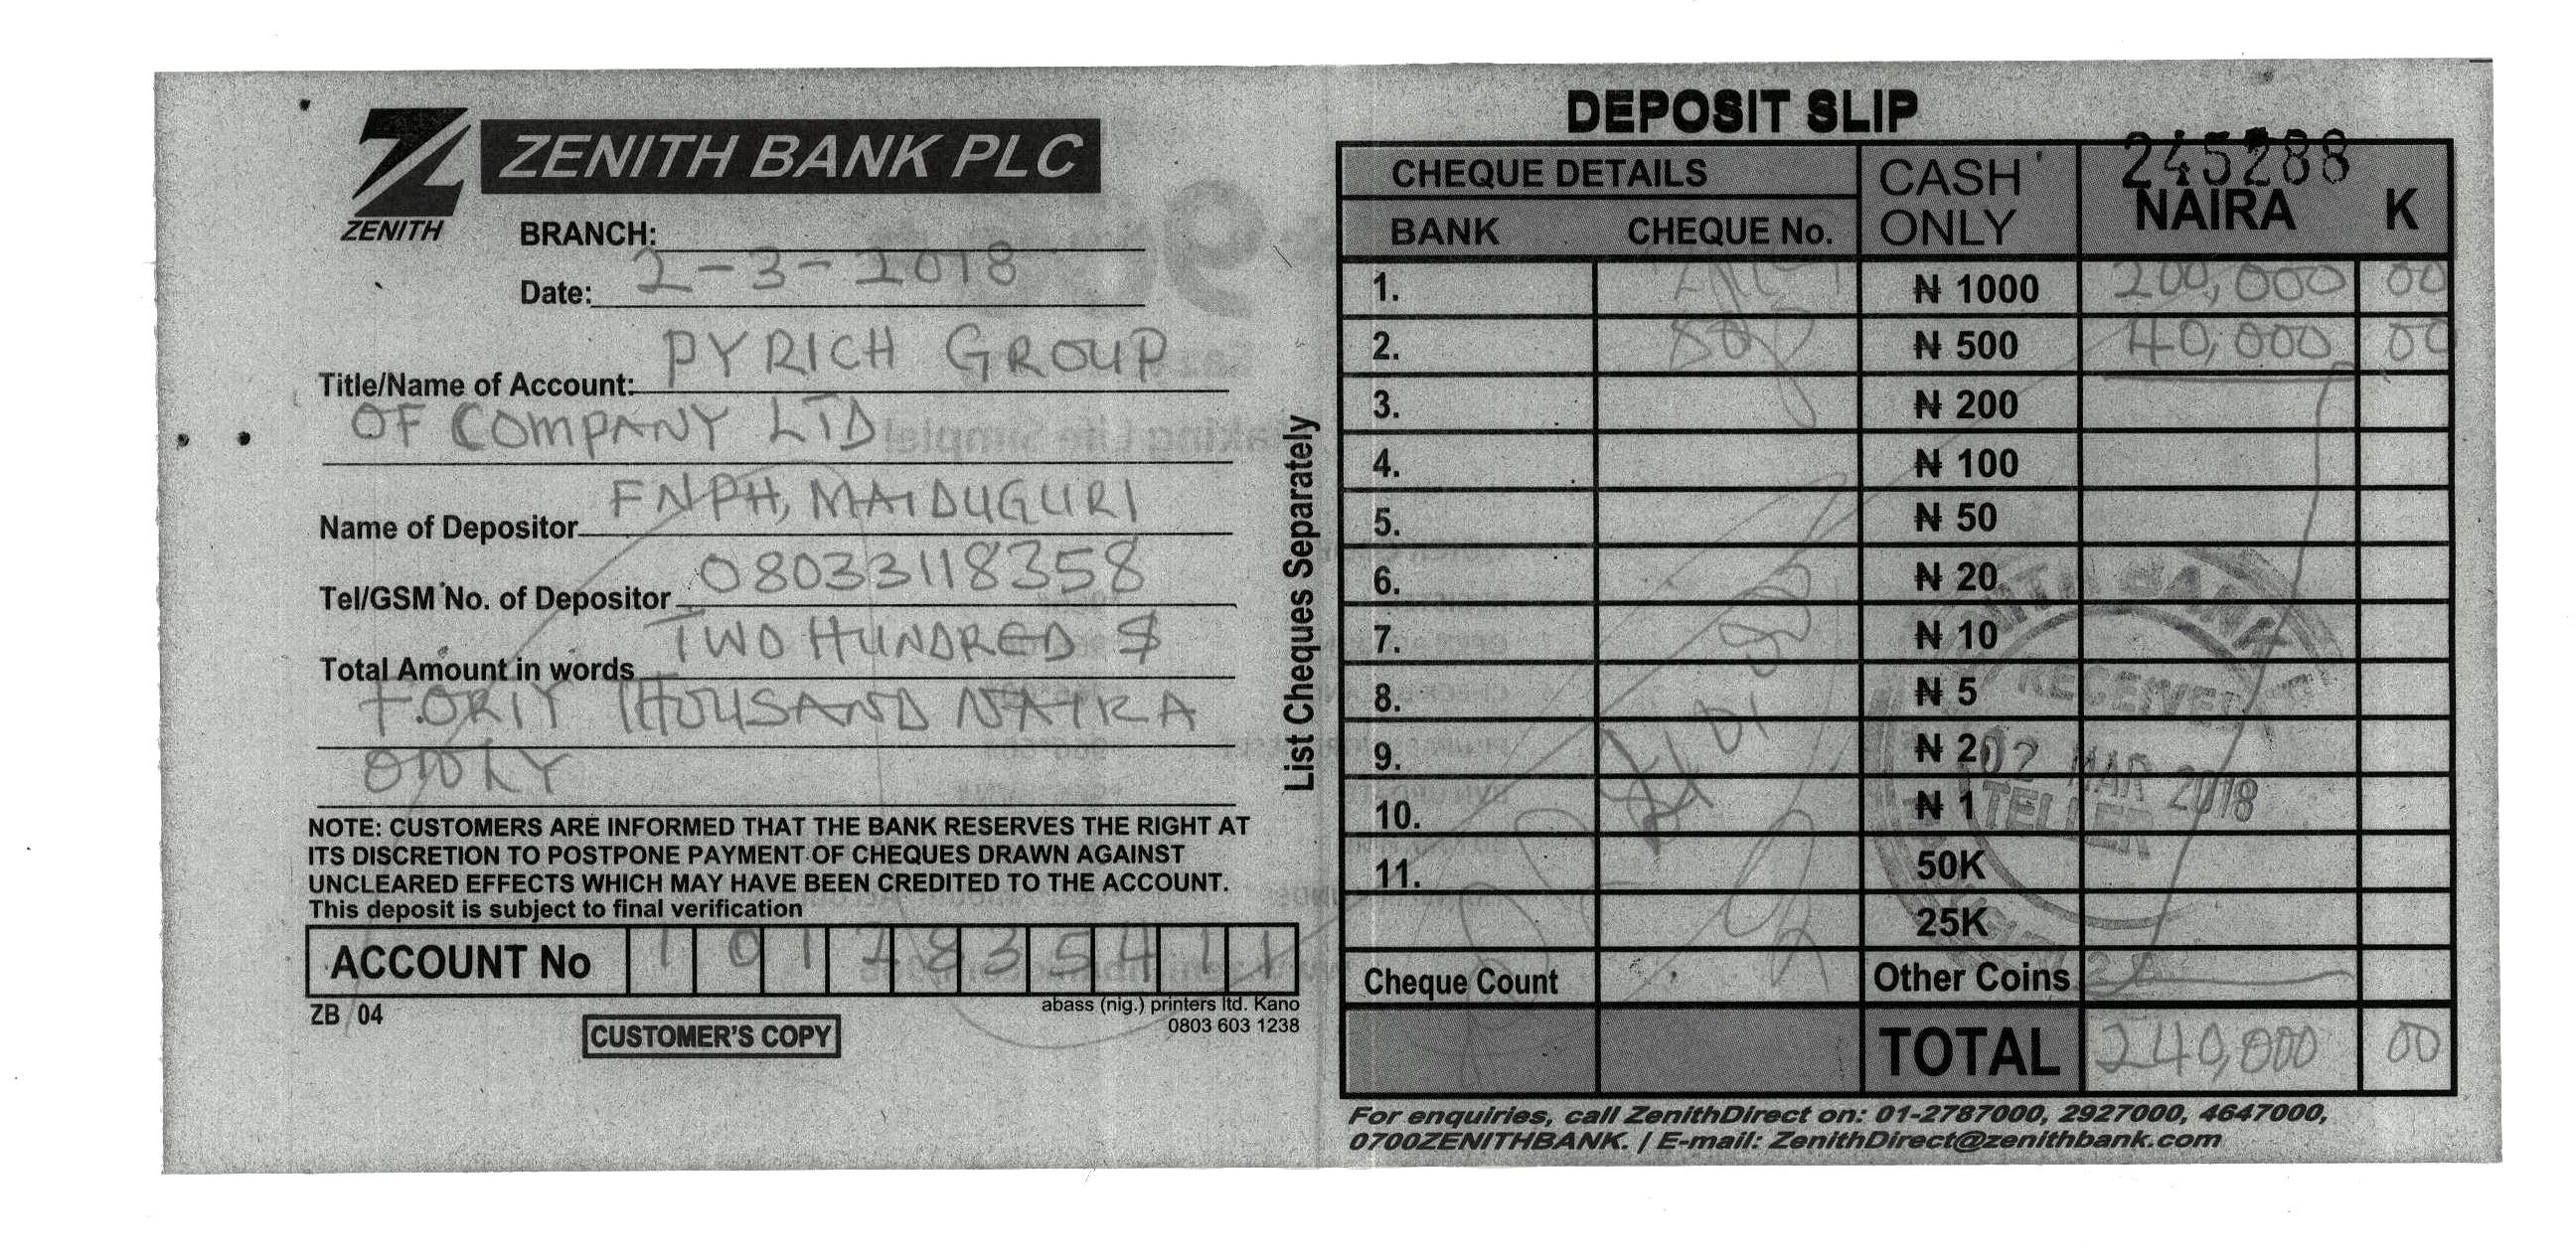 ZENITH BANK PLC
ZENITH
BRANCH:
Date: 2-3-2018
Title/Name of Account: PYRICH GROUP
OF COMPANY LTD
Name of Depositor FNPH, MAIDUGURI
Tel/GSM No. of Depositor 08033118358
Total Amount in words TWO HUNDRED $
FORTY THOUSAND NAIRA
ONLY
NOTE: CUSTOMERS ARE INFORMED THAT THE BANK RESERVES THE RIGHT AT
ITS DISCRETION TO POSTPONE PAYMENT OF CHEQUES DRAWN AGAINST
UNCLEARED EFFECTS WHICH MAY HAVE BEEN CREDITED TO THE ACCOUNT.
This deposit is subject to final verification
ACCOUNT No 1017835411
ZB 04
abass (nig.) printers ltd. Kano
0803 603 1238
CUSTOMER'S COPY
List Cheques Separately
DEPOSIT SLIP
245288
CHEQUE DETAILS CASH ONLY NAIRA K
BANK CHEQUE No.
1. ₦ 1000 200,000 00
2. ₦ 500 40,000 00
3. ₦ 200
4. ₦ 100
5. ₦ 50
6. ₦ 20
7. ₦ 10
8. ₦ 5
9. ₦ 2
10. ₦ 1
11. 50K
25K
Cheque Count Other Coins
TOTAL 240,000 00
ZENITH BANK
RECEIVED
02 MAR 2018
TELLER
For enquiries, call ZenithDirect on: 01-2787000, 2927000, 4647000,
0700ZENITHBANK. / E-mail: ZenithDirect@zenithbank.com